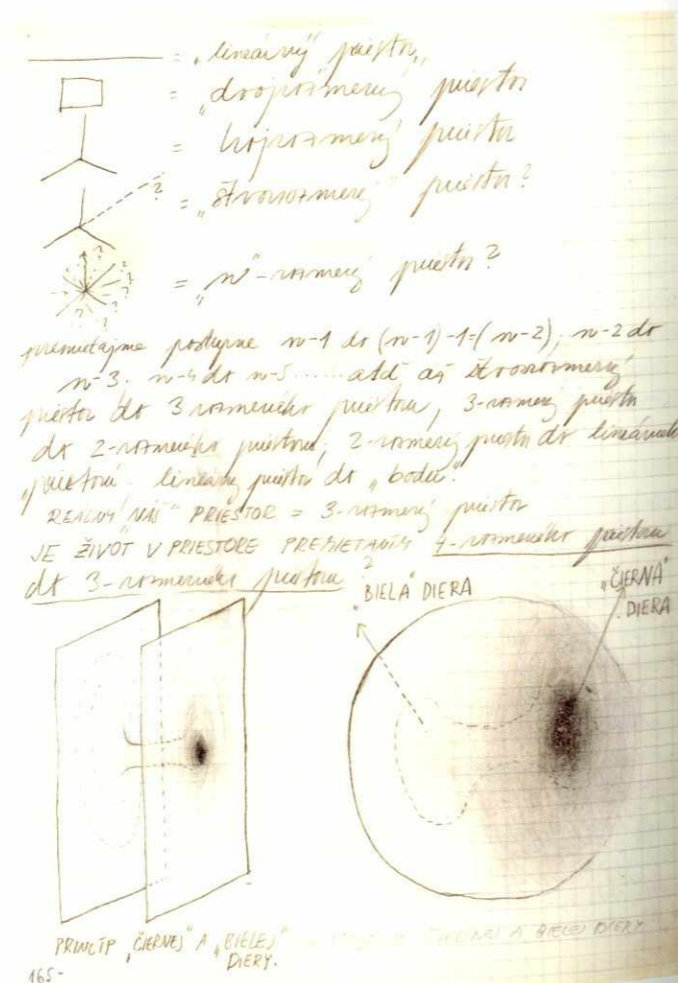 = „lineárny" priestor„
= „dvojrozmerný priestor
= trojrozmerný priestor
? = „štvorrozmerný" priestor?
? ? ? ? ? ? ? = „n"-rozmerný priestor?
premietajme postupne n-1 do (n-1)-1=(n-2), n-2 do
n-3. n-4 do n-5...... atď až štvorrozmerný
priestor do 3 rozmerného priestoru, 3-rozmerný priestor
do 2-rozmerného priestoru, 2-rozmerný priestor do lineárneho
„priestoru" lineárny priestor do „bodu".
REÁLNY „NÁŠ" PRIESTOR = 3-rozmerný priestor
JE ŽIVOT V PRIESTORE PREMIETANÍM 4-rozmerného priestoru
do 3-rozmerného priestoru?
„BIELA" DIERA
„ČIERNA"
DIERA
PRINCÍP „ČIERNEJ" A „BIELEJ"
DIERY.
ČIERNEJ A BIELEJ DIERY
165-